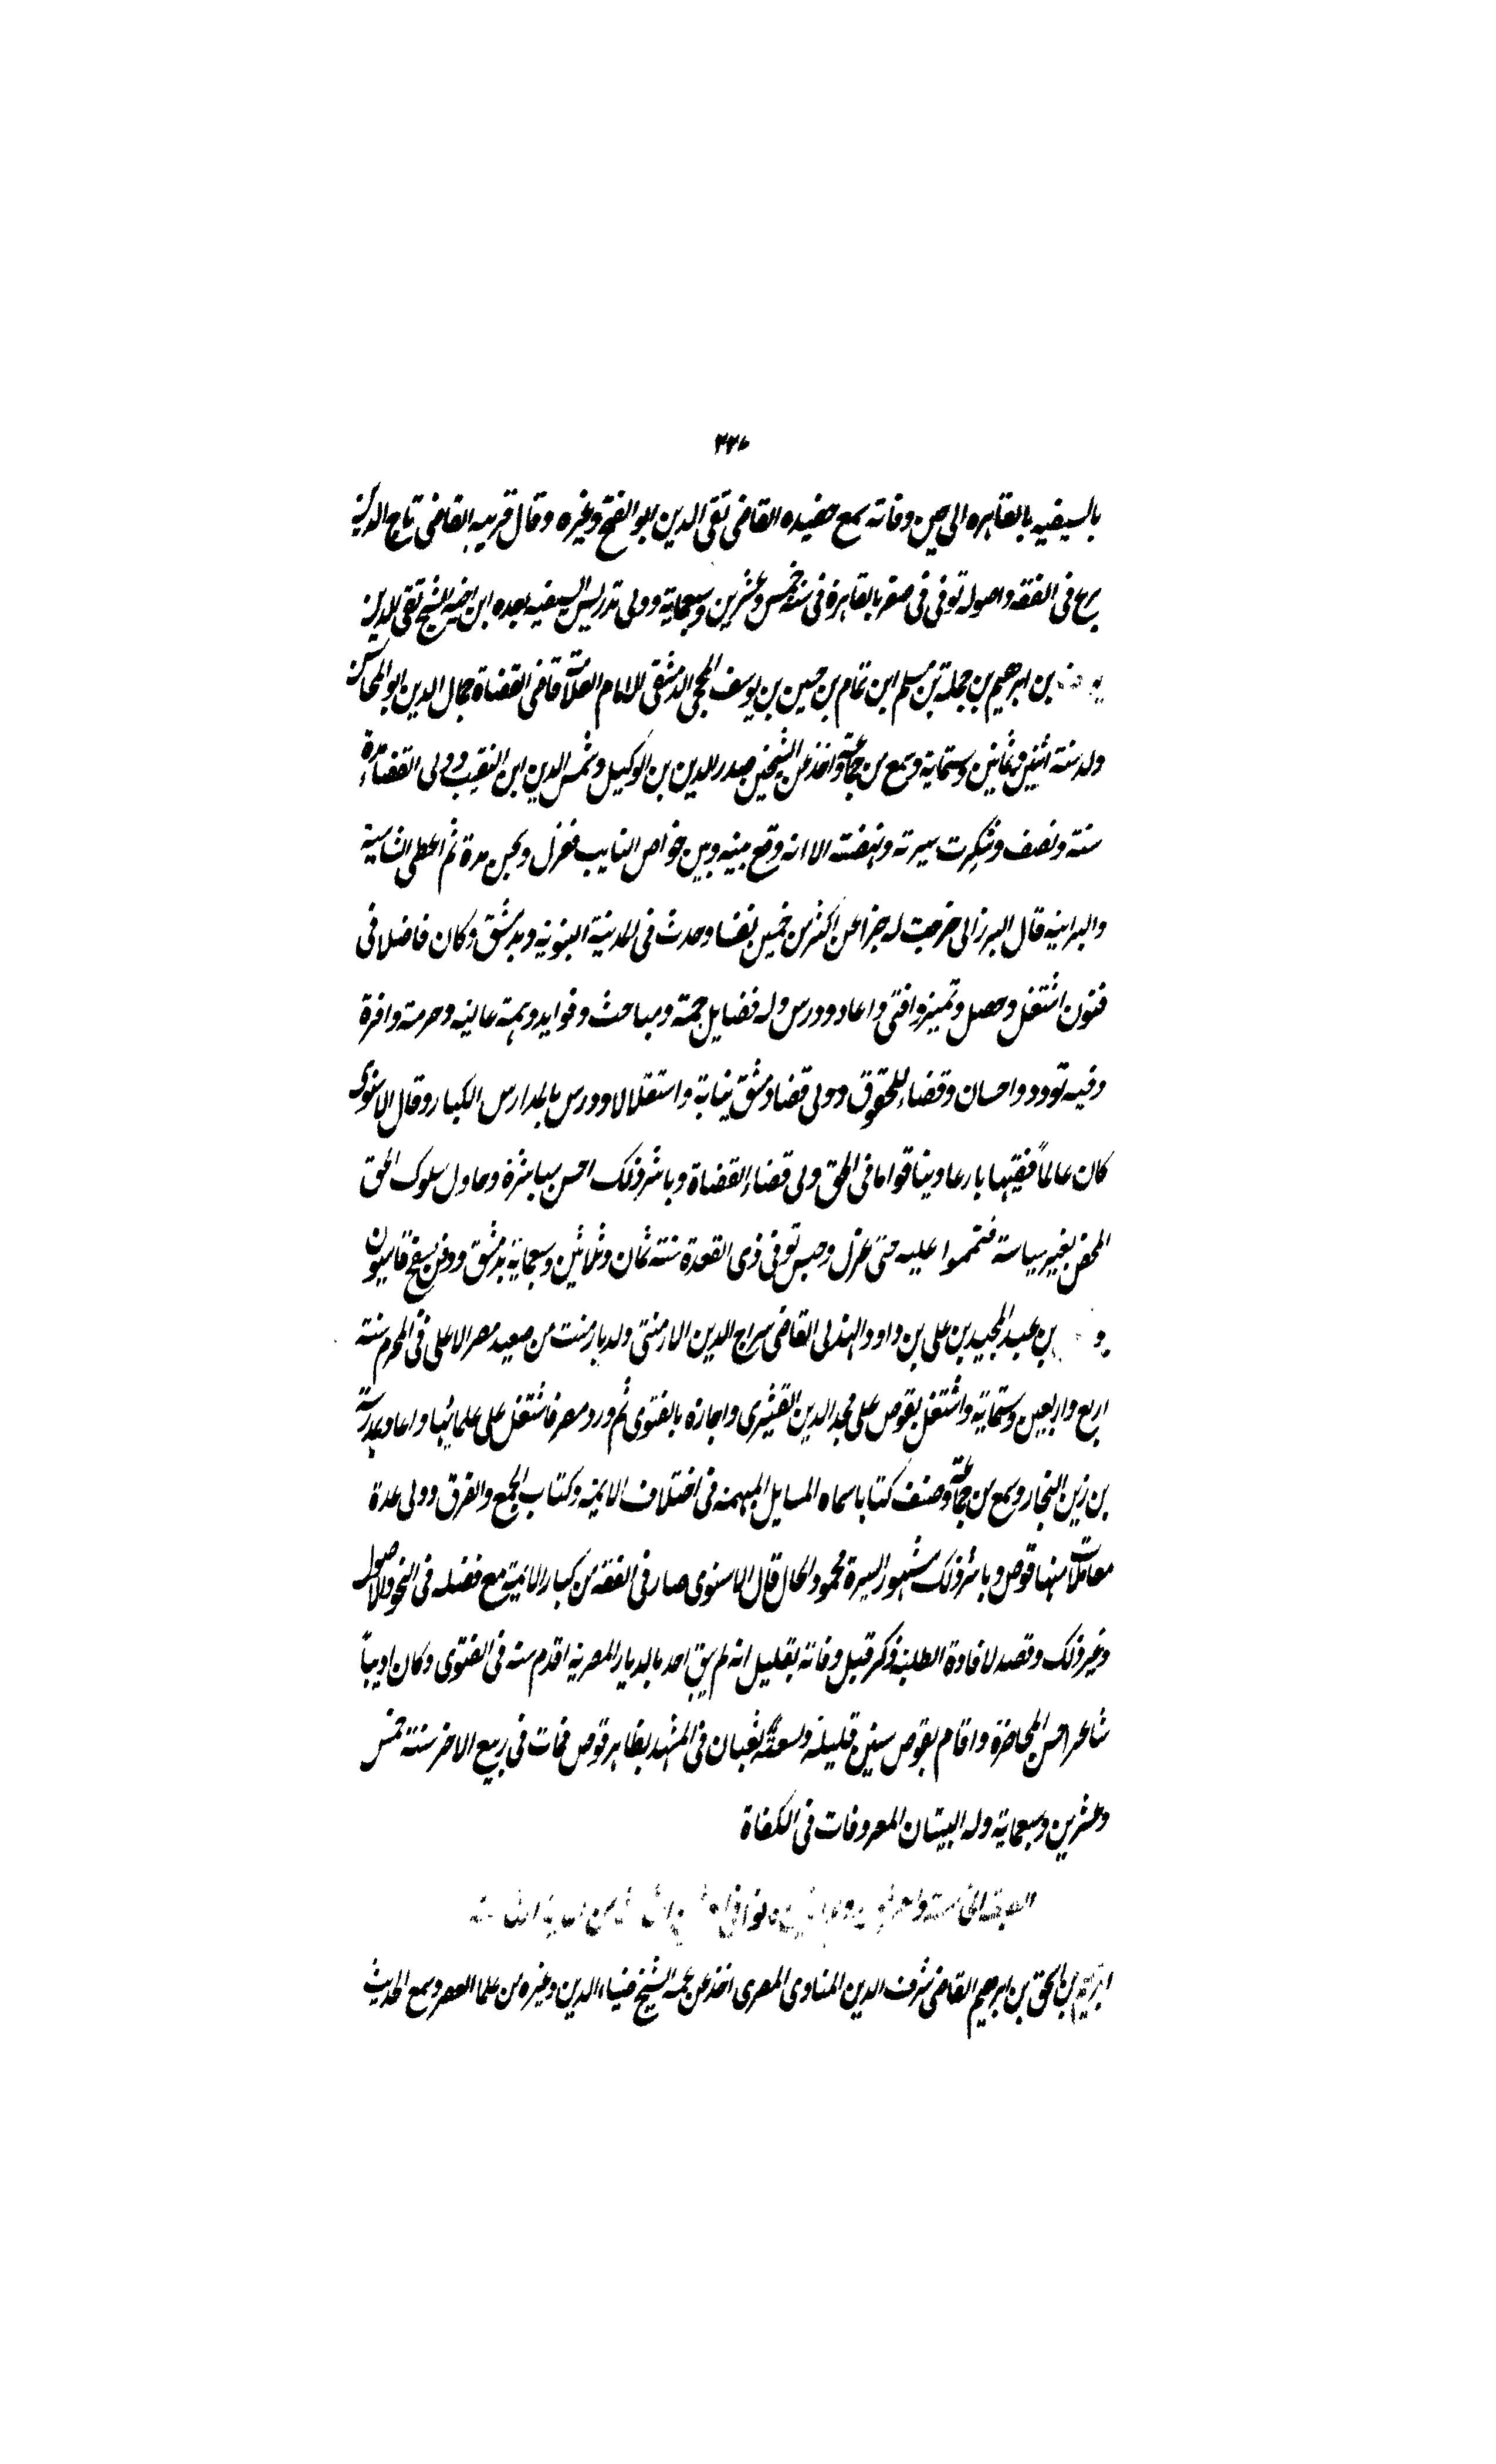 بالسيفيه بالقاهره الى حين وفاته سمع حفيده القاضى تقى الدين ابو الفتح وغيره وقال قريبه القاضى تاج الدين
برع فى الفقه واصوله توفى فى صفر بالقاهرة فى سنة خمس وعشرين وسبعماية وولى تدريس السيفيه بعده ابن اخيه الشيخ تقى الدين
بن ابرهيم بن جملة بن مسلم ابن تمام بن حسين بن يوسف المحجى الدمشقى الامام العلامة قاضى القضاة جمال الدين ابو المحاسن
ولد سنة اثنين وثمانين وستماية وسمع من جماعة واخذ عن الشيخين صدر الدين بن الوكيل وشمس الدين ابن النقيب وولى القضاء مدة
سنة ونصف وشكرت سيرته ونهضته الا انه وقع بينه وبين خواص النايب فعزل وسجن مدة ثم اعطى الشامية
والبرانيه قال البرزالى خرجت له جزا عن اكثر من خمسين نفسا وحدث فى المدينة النبوية وبدمشق وكان فاضلا فى
فنون اشتغل وحصل وتميز وافتى واعاد ودرس وله فضايل جمة ومباحث وفوايد وهمة عالية وحرمة وافرة
وفيه تودد واحسان وقضاء للحقوق وولى قضا دمشق نيابة واستقلالا ودرس بالمدارس الكبار وقال الاسنوى
كان عالماً فقيها بارعا دينا قواما فى الحق ولى قضاء القضاة وباشر ذلك احسن مباشرة وحاول سلوك الحق
المحض بغير سياسة فتمموا عليه حتى عزل وحبس توفى ذى القعدة سنة ثمان وثلاثين وسبعماية بدمشق ودفن بسفح قاسيون
بن عبد المجيد بن على بن داود الهذلى القاضى سراج الدين الارمنتى ولد بارمنت من صعيد مصر الاعلى فى المحرم سنة
اربع واربعين وستماية واشتغل بقوص على مجد الدين القشيرى واجازه بالفتوى ثم ورد مصر فاشتغل على علمائها واعاد بمدرسة
بن زين التجار وسمع من جماعة وصنف كتابا سماه المسايل المهمة فى اختلاف الايمة وكتاب الجمع والفرق وولى عدة
معاملات منها قوص وباشر ذلك مشهور السيرة محمود الحال قال الاسنوى صار فى الفقه من كبار الايمة مع فضله فى النحو والاصول
وغير ذلك وقصد لافادة الطلبة ذكر قبل وفاته بقليل انه لم يبق احد بالديار المصرية اقدم منه فى الفتوى وكان اديباً
شاعرا حسن المحاضرة واقام بقوص سنين قليلة ولسعه ثعبان فى المشهد بظاهر قوص فمات فى ربيع الاخر سنة خمس
وعشرين وسبعماية وله البيتان المعروفات فى الكفاة
ابرهيم بن اسحق بن ابرهيم القاضى شرف الدين المناوى المصرى اخذ عن عمه الشيخ ضياء الدين وغيره من علما العصر وسمع الحديث